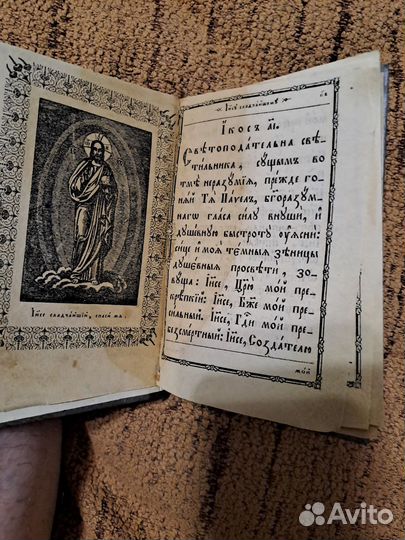 Іи҃се сладчайшїй, спаси мѧ.
Іи҃се сладчайшїй
І҆́косъ а҃і.
Свѣ́топода́тельна свѣ-
ти́льника, сꙋ́щымъ во
тмѣ̀ неразꙋ́мїѧ, пре́жде го-
нѧ́й Тѧ̀ Па́ѵелъ, бг҃оразꙋ́м-
нагѡ гла́са си́лꙋ внꙋшѝ, и҆
дꙋше́внꙋю быстротꙋ̀ оу҆ѧснѝ:
си́це и҆ моѧ̑ те́мныѧ зѣ̑ницы
дꙋшє́вныѧ просвѣтѝ, зо-
вꙋ́ща: І҆и҃се, Цр҃ю̀ мо́й пре-
крѣ́пкїй: І҆и҃се, Бж҃е мо́й пре-
си́льный: І҆и҃се, Гдⷭ҇и мо́й пре-
безсме́ртный: І҆и҃се, Созда́телю
мо́й
Avito